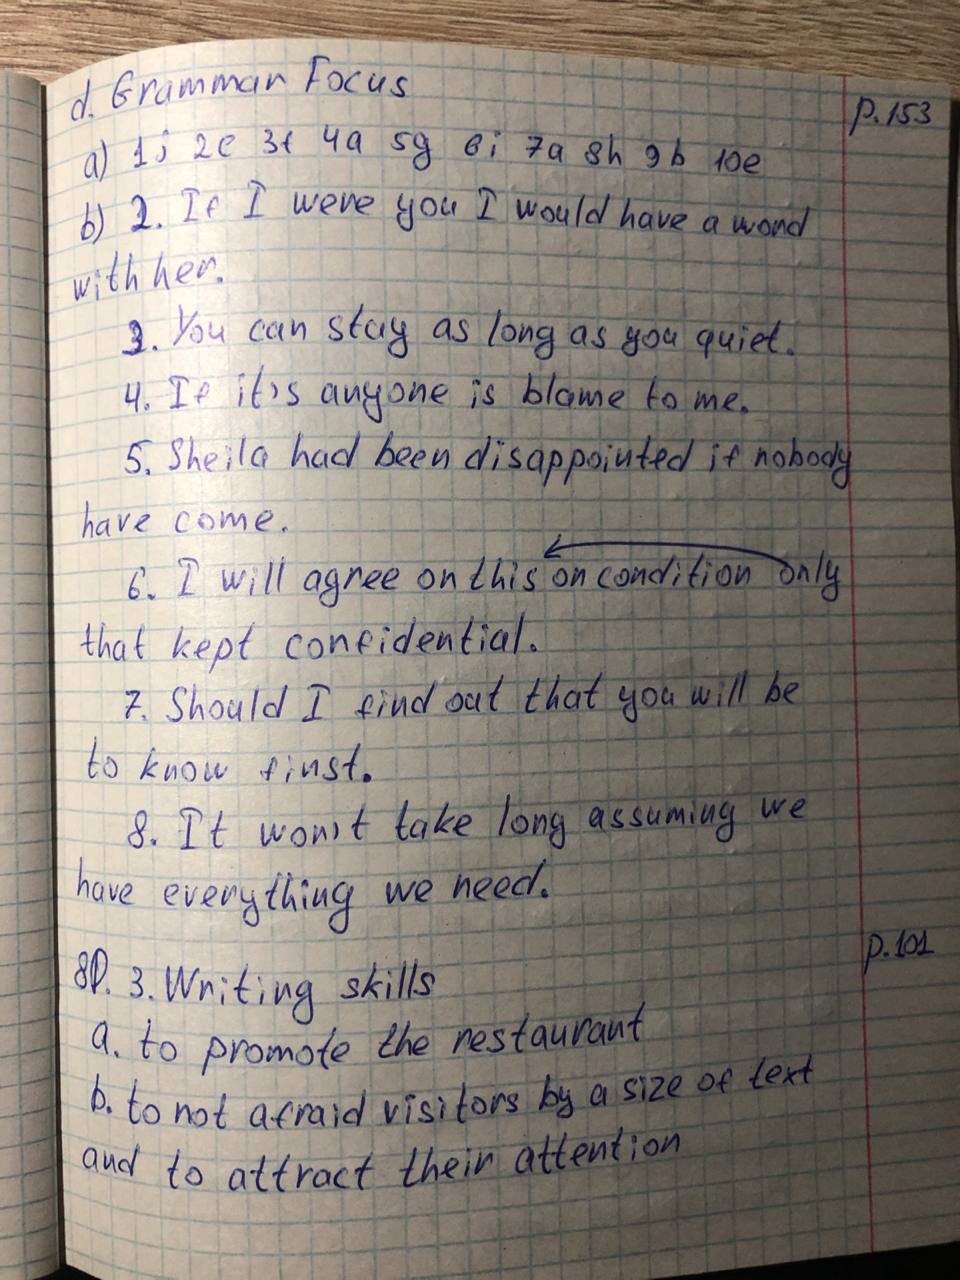 d. Grammar Focus
p.153
a) 1j 2c 3f 4a 5g 6i 7a 8h 9b 10e
b) 2. If I were you I would have a word
with her.
3. You can stay as long as you quiet.
4. If it's anyone is blame to me.
5. Sheila had been disappointed if nobody
have come.
6. I will agree on this on condition only
that kept confidential.
7. Should I find out that you will be
to know first.
8. It won't take long assuming we
have everything we need.
p.101
8D. 3. Writing skills
a. to promote the restaurant
b. to not afraid visitors by a size of text
and to attract their attention